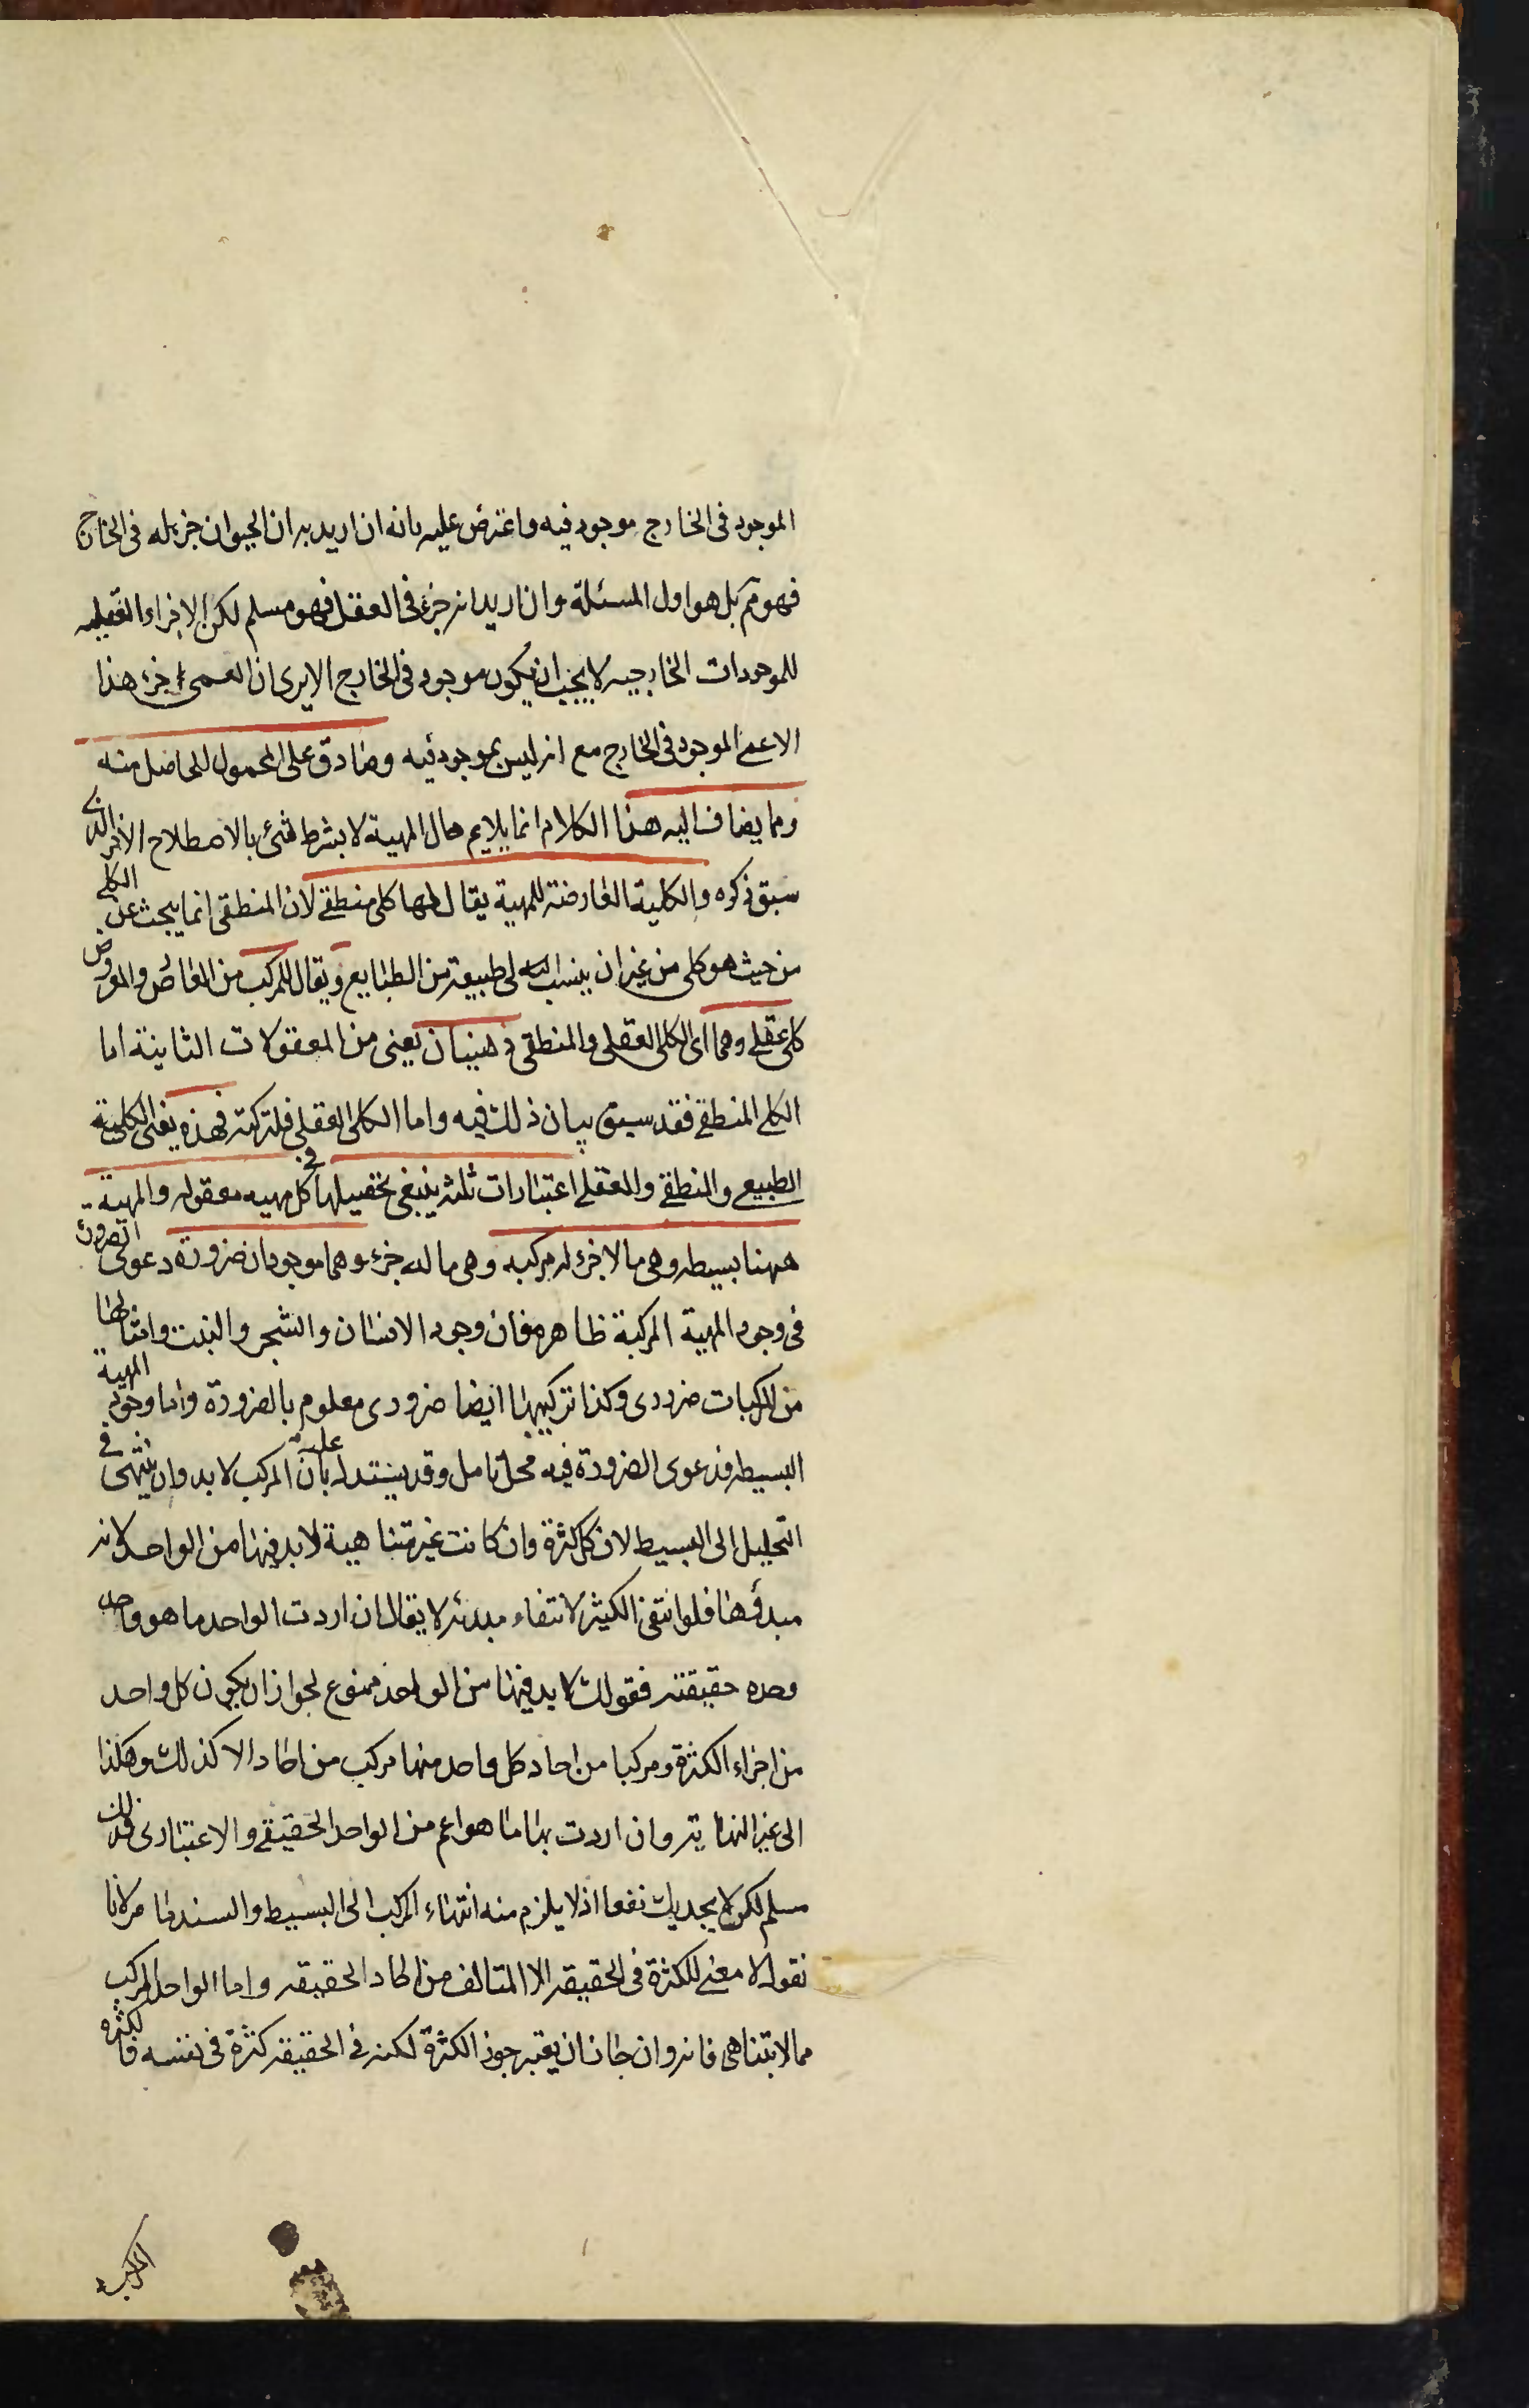 الموجود فى الخارج موجود فيه واعترض عليه بانه ان اريد به ان الحيوان جزء له فى الخارج
فهو مم بل هو اول المسئلة وان اريد انه جزء فى العقل فهو مسلم لكن الاجزاء العقليه
للموجودات الخارجيه لا يجب ان يكون موجود فى الخارج الا يرى ان العمى جزء هذا
الاعمى الموجود فى الخارج مع انه ليس بموجود فيه وصادق على المحمول للحاصل منه
ومما يضاف اليه هذا الكلام انما يلايم حال المهية لا بشرط شئ بالاصطلاح الاخر الذى
سبق ذكره والكلية العارضة للمهية يقال لها كلى منطقى لان المنطقى انما يبحث عن الكلى
من حيث هو كلى من غير ان ينسب الى طبيعة من الطبايع ويقال للمركب من العارض والمعروض
كلى عقلى وهما اى الكلى العقلى والمنطقى ذهنيان يعنى من المعقولات الثانية اما
الكلى المنطقى فقد سبق بيان ذلك فيه واما الكلى العقلى فلتركبه فهذه يعنى الكلية
الطبيعى والمنطقى والعقلى اعتبارات ثلثه ينبغى تحصيلها فى كل مهيه معقوله والمهية
ههنا بسيطه وهى ما لا جزء له ومركبه وهى ما له جزء وهما موجودان ضرورة دعوى الضرورة
فى وجود المهية المركبة ظاهره فان وجود الانسان والشجر والبيت وامثالها
من المركبات ضرورى وكذا تركيبها ايضا ضرورى معلوم بالضرورة واما وجود المهية
البسيطه فدعوى الضرورة فيه محل تامل وقد يستدل عليه بان المركب لا بد وان ينتهى فى
التحليل الى البسيط لان كل كثرة وان كانت غير متناهية لا بد فيها من الواحد لانه
مبدؤها فلو انتفى الكثير لانتفاء مبدئه لا يقال ان اردت الواحد ما هو واحد
وحده حقيقته فقولك لا بد فيها من الواحد ممنوع لجواز ان يكون كل واحد
من اجزاء الكثرة ومركبا من احاد كل واحد منها مركب من احاد الا كذلك وهكذا
الى غير النهايه وان اردت بها ما هو اعم من الواحد الحقيقى والاعتبارى فذلك
مسلم لكن لا يجديك نفعا اذ لا يلزم منه انتهاء المركب الى البسيط والسند ما مر لانا
نقول لا معنى للكثرة فى الحقيقه الا المتالف من احاد الحقيقه واما الواحد المركب
مما لا يتناهى فانه وان جاز ان يعتبر جزء الكثرة لكنه فى الحقيقه كثرة فى نفسه فالكثره
المركبه